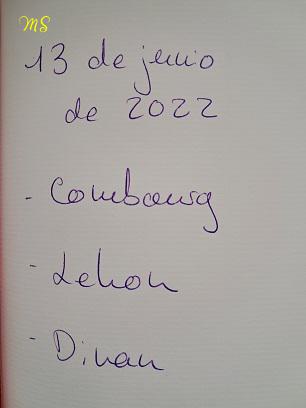 MS
13 de junio
de 2022
- Combourg
- Lehon
- Dinan